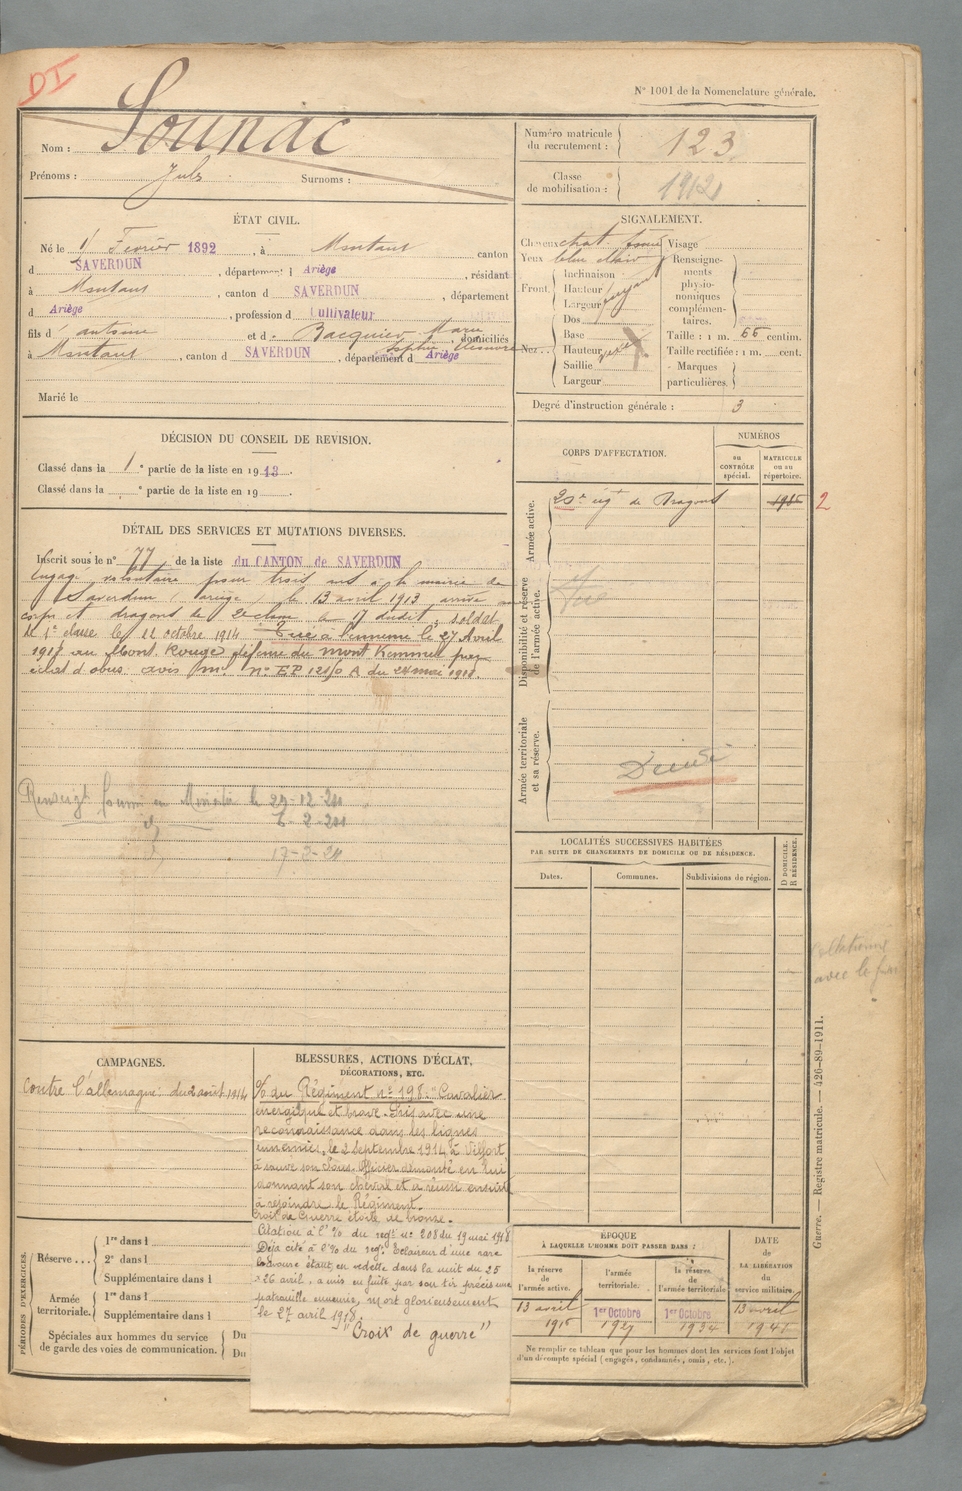 DI
N° 1001 de la Nomenclature générale.
Nom : Sounac
Prénoms : Jules Surnoms :
Numéro matricule du recrutement : 123
Classe de mobilisation : 1912
ÉTAT CIVIL.
Né le 1r Fevrier 1892, à Montaut canton
d SAVERDUN, département d Ariège, résidant
à Montaut, canton d SAVERDUN, département
d Ariège, profession d Cultivateur
fils d' antoine et d Bacquier Marie
Sophie, domiciliés
à Montaut, canton d SAVERDUN, département d Ariège
Marié le
SIGNALEMENT.
Cheveux chat. foncé Visage
Yeux bleu clair Renseignements physionomiques complémentaires.
Front. Inclinaison
Hauteur fuyant
Largeur
Nez.. Dos
Base
Hauteur
Saillie
Largeur
Taille : 1 m. 66 centim.
Taille rectifiée : 1 m. cent.
Marques particulières.
Degré d'instruction générale : 3
DÉCISION DU CONSEIL DE REVISION.
Classé dans la 1e partie de la liste en 1913.
Classé dans la e partie de la liste en 19
DÉTAIL DES SERVICES ET MUTATIONS DIVERSES.
Inscrit sous le n° 77 de la liste du CANTON de SAVERDUN
Engagé volontaire pour trois ans à la mairie de
Saverdun (ariège) le 13 avril 1913 arrivé au
corps et dragons de 2e classe le 17 dudit, soldat
de 1e classe le 11 octobre 1914 Tué à l'ennemi le 27 Avril
1918 au Mont Rouge défense du mont Kemmel par
éclat d'obus. avis mel n° EP 12190 A du 24 mai 1918.
Renseigt fourni au Ministère le 29-12-20
6-2-21
17-3-21
CORPS D'AFFECTATION.
NUMÉROS
au CONTRÔLE spécial.
MATRICULE ou au répertoire.
Armée active.
20e régt de Dragons 1915 2
Disponibilité et réserve de l'armée active.
Tué
Armée territoriale et sa réserve.
Décédé
LOCALITÉS SUCCESSIVES HABITÉES
PAR SUITE DE CHANGEMENTS DE DOMICILE OU DE RÉSIDENCE.
Dates. Communes. Subdivisions de région. D DOMICILE. R RÉSIDENCE.
Collationné
avec le
Guerre. — Registre matricule. — 426-89-1911.
CAMPAGNES.
Contre l'allemagne: du 2 août 1914
BLESSURES, ACTIONS D'ÉCLAT,
DÉCORATIONS, ETC.
% du Régiment n° 198. "Cavalier
énergique et brave. Pris avec une
reconnaissance dans les lignes
ennemies, le 2 Septembre 1914 à Vilfort,
à sauvé son Sous-Officier démonté en lui
donnant son cheval et a réussi ensuite
à rejoindre le Régiment.
Croix de Guerre étoile de bronze.
Citation à l'% du regt n° 208 du 19 mai 1918
Déjà cité à l'% du regt. Eclaireur d'une rare
bravoure étant en vedette dans la nuit du 25
26 avril, a mis en fuite par son tir précis une
patrouille ennemie, mort glorieusement
le 27 avril 1918.
"Croix de guerre"
PÉRIODES D'EXERCICES.
Réserve... 1re dans l
2e dans l
Supplémentaire dans l
Armée territoriale. 1re dans l
Supplémentaire dans l
Spéciales aux hommes du service de garde des voies de communication. Du
Du
ÉPOQUE
À LAQUELLE L'HOMME DOIT PASSER DANS :
DATE de LA LIBÉRATION du service militaire.
la réserve de l'armée active. l'armée territoriale. la réserve de l'armée territoriale
13 avril 1916 1er Octobre 1927 1er Octobre 1934 13 avril 1941
Ne remplir ce tableau que pour les hommes dont les services font l'objet
d'un décompte spécial (engagés, condamnés, omis, etc.).